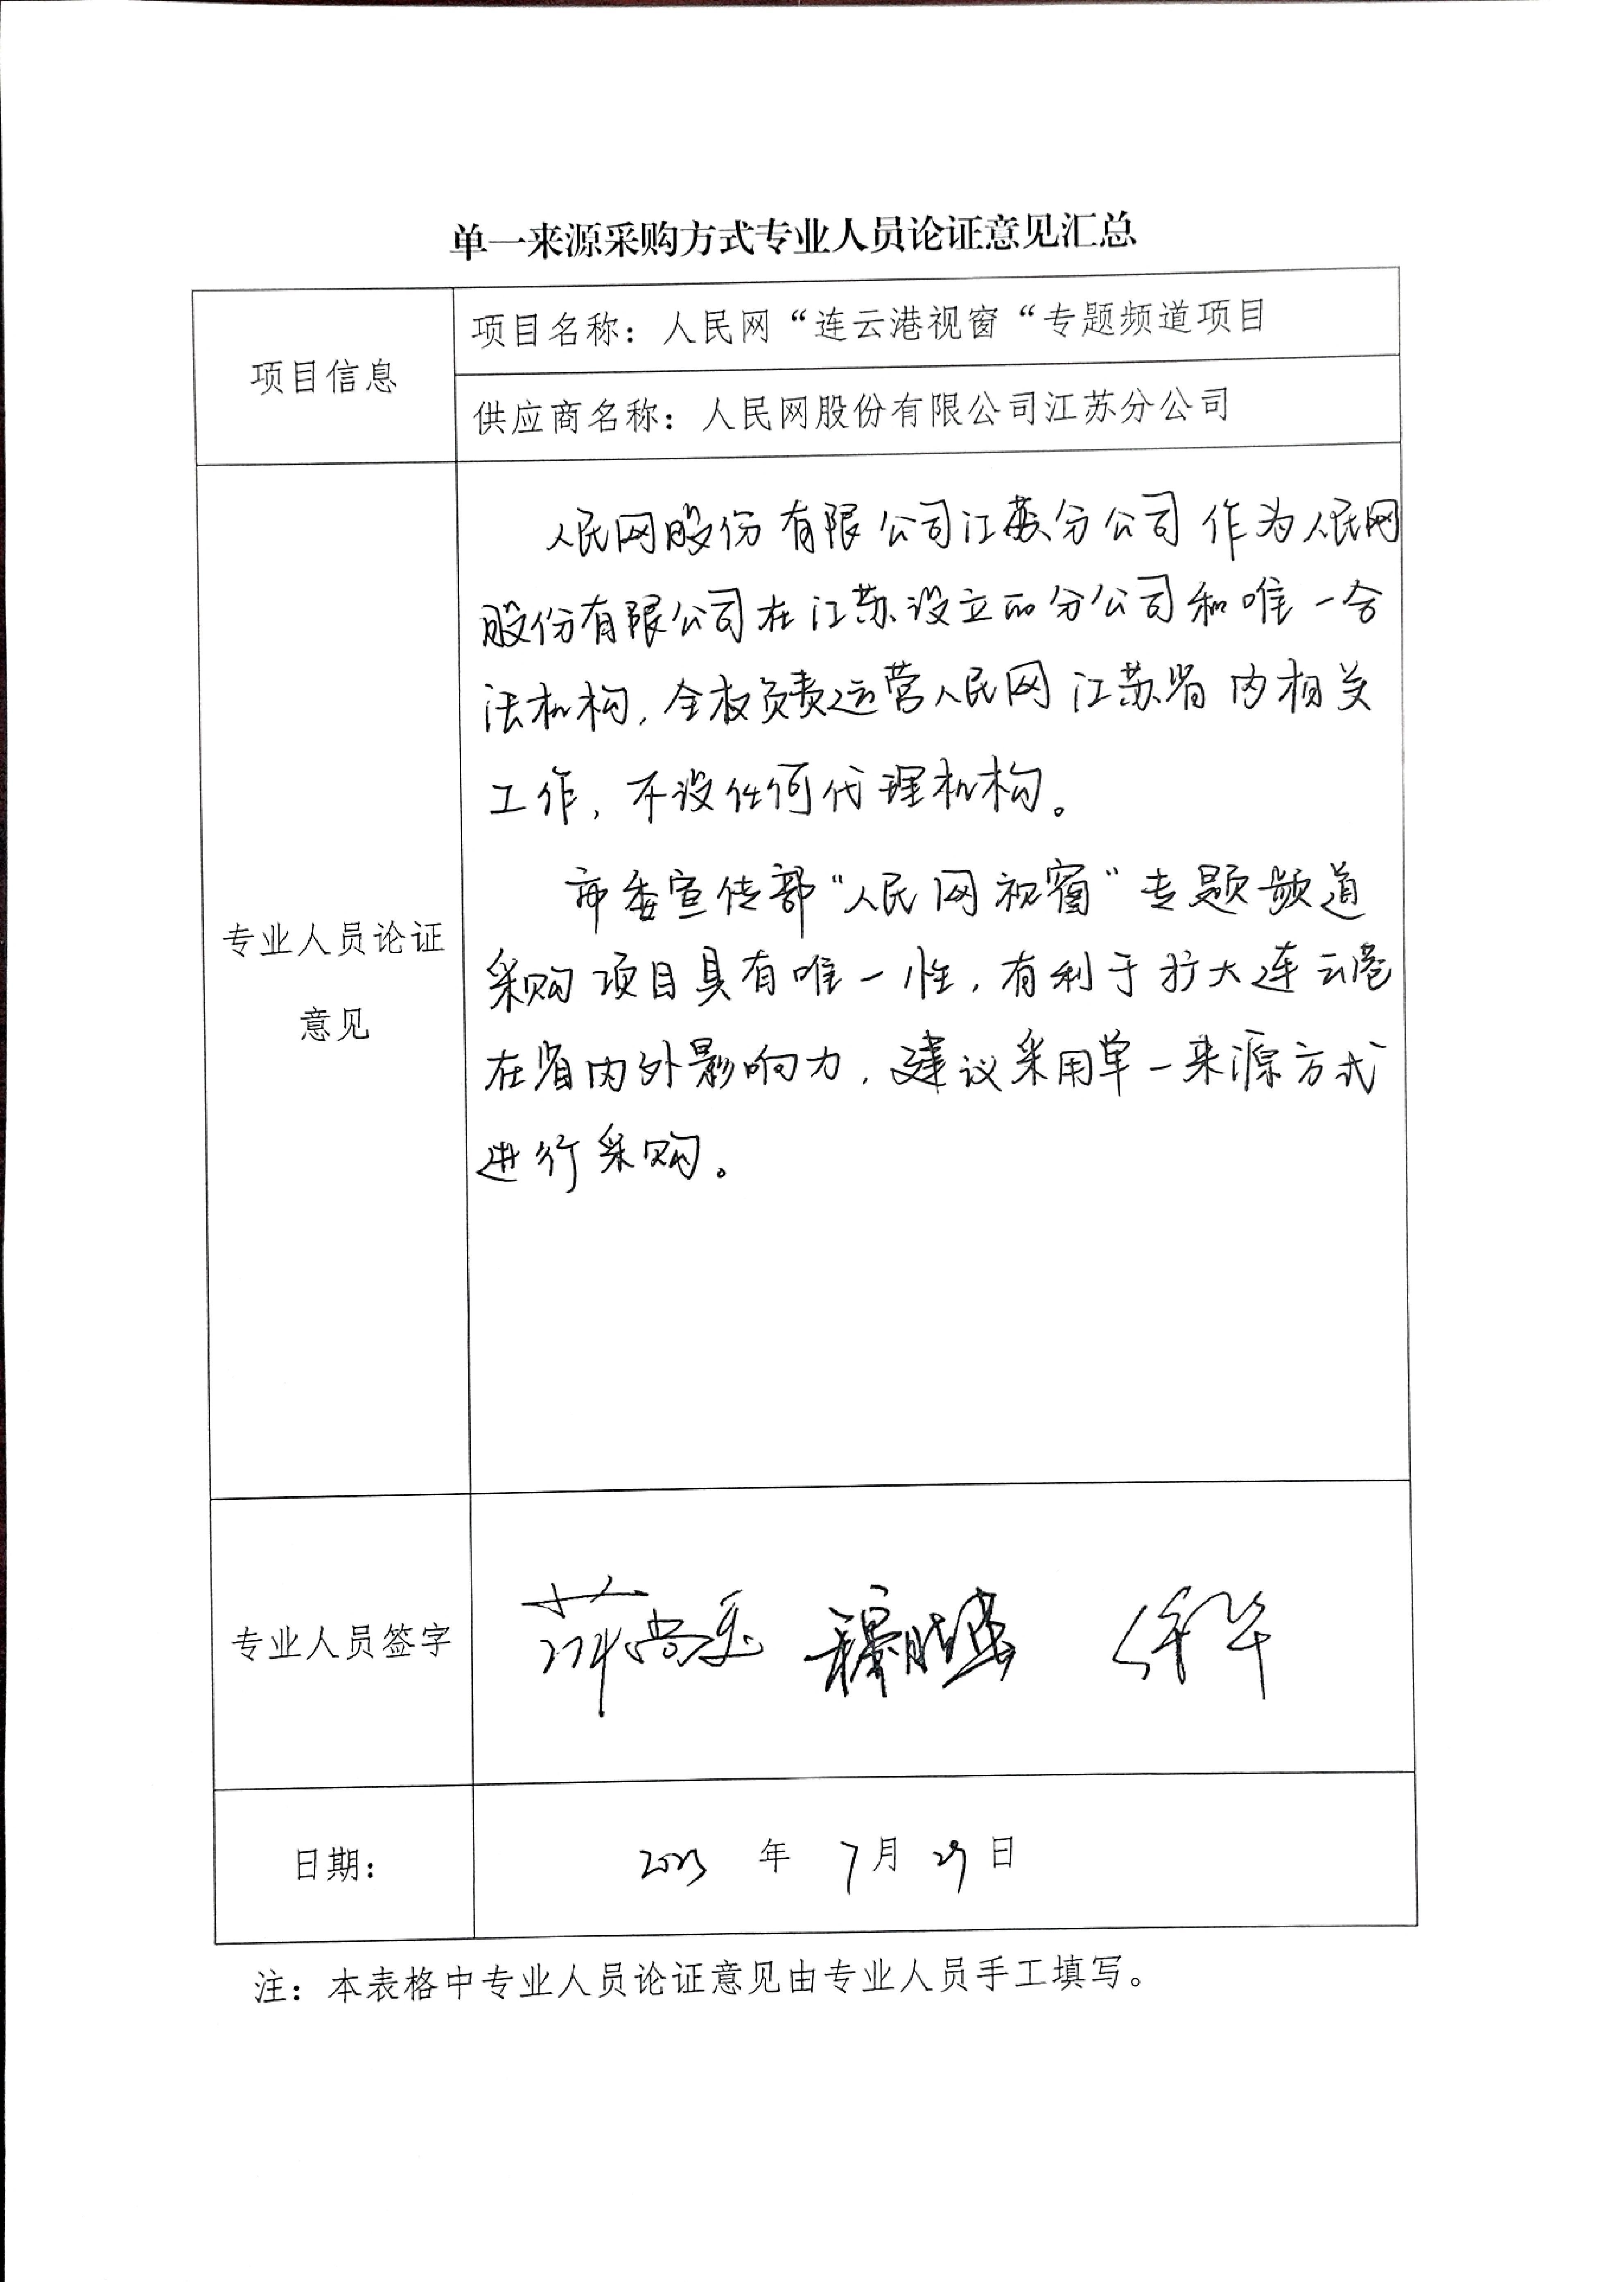 单一来源采购方式专业人员论证意见汇总
项目信息
项目名称：人民网“连云港视窗“专题频道项目
供应商名称：人民网股份有限公司江苏分公司
专业人员论证
意见
人民网股份有限公司江苏分公司作为人民网
股份有限公司在江苏设立的分公司和唯一合
法机构，全权负责运营人民网江苏省内相关
工作，不设任何代理机构。
市委宣传部“人民网视窗”专题频道
采购项目具有唯一性，有利于扩大连云港
在省内外影响力，建议采用单一来源方式
进行采购。
专业人员签字
日期：
2023 年 7 月 29 日
注：本表格中专业人员论证意见由专业人员手工填写。